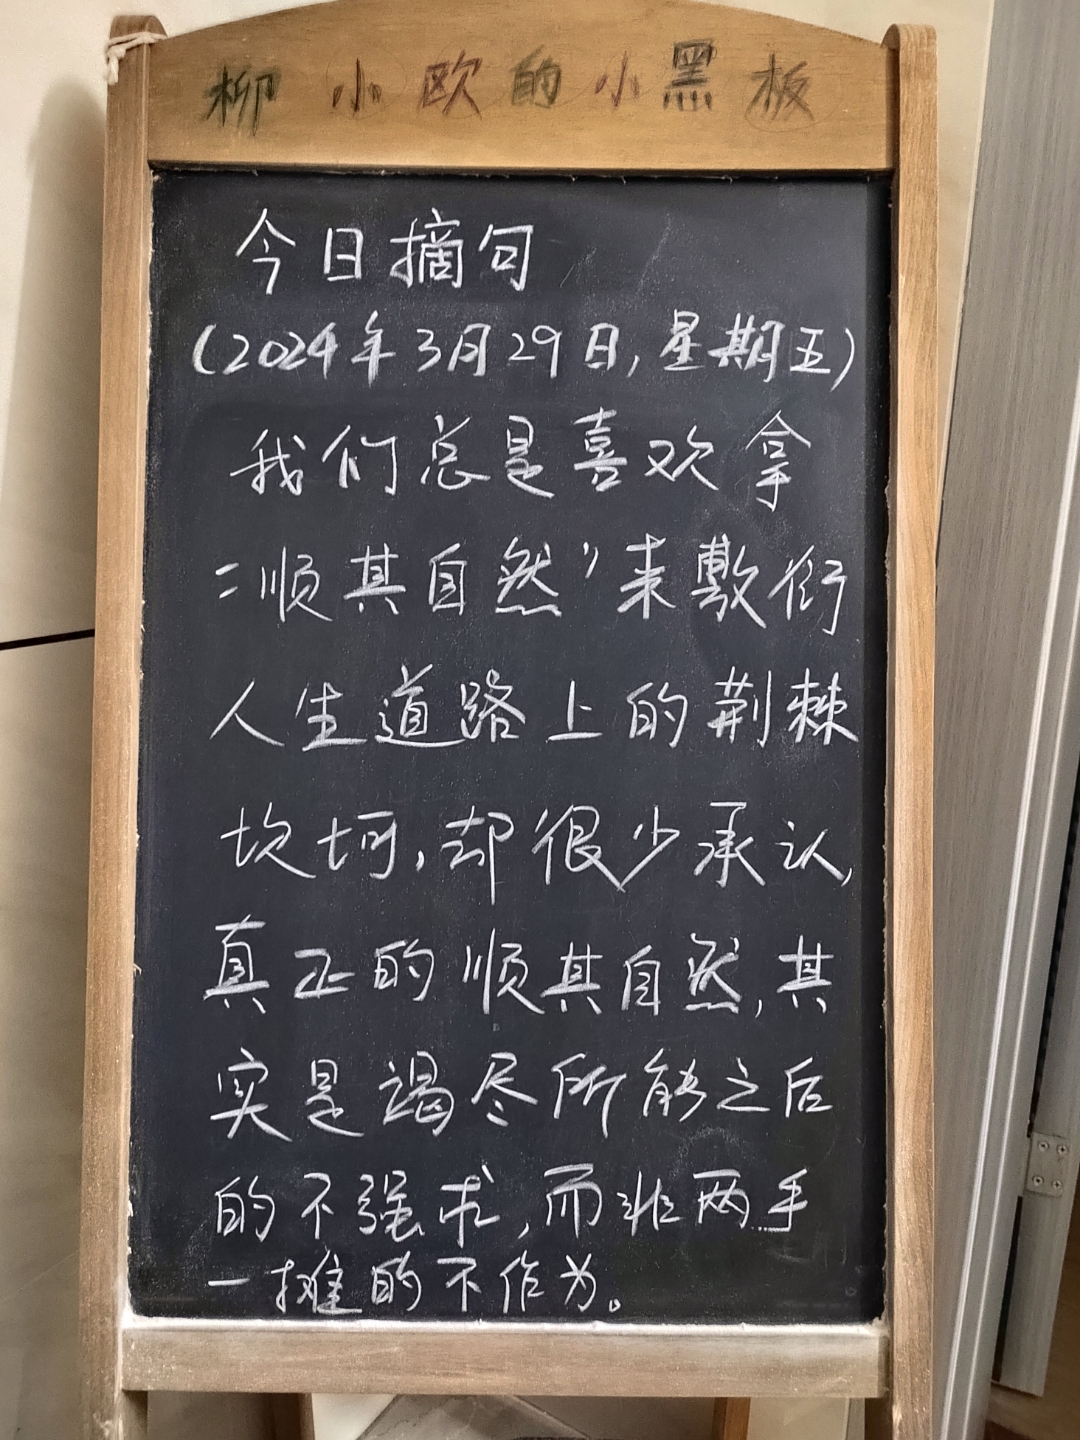 柳小欧的小黑板
今日摘句
(2024年3月29日,星期五)
我们总是喜欢拿
“顺其自然”来敷衍
人生道路上的荆棘
坎坷,却很少承认,
真正的顺其自然,其
实是竭尽所能之后
的不强求,而非两手
一摊的不作为。